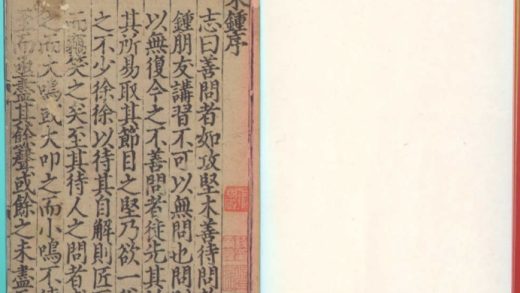 鍾序
志曰善問者如攻堅木善待問
鍾朋友講習不可以無問也問
以無復今之不善問者徒先其
其所易取其節目之堅乃欲一
之不少徐徐以待其自解則匠
而竊笑之矣至其待人之問者或
之而大鳴或大叩之而小鳴不
而亟盡其餘聲或餘之未盡